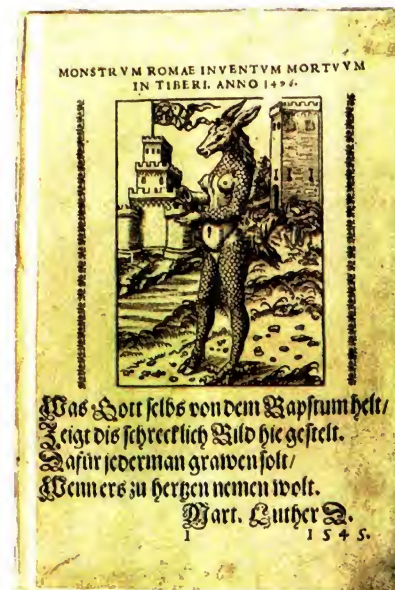 MONSTRVM ROMAE INVENTVM MORTVVM
IN TIBERI. ANNO 1496.
Was Gott selbs von dem Bapstum helt/
Zeigt dis schrecklich Bild hie gestelt.
Dafür jederman grawen solt/
Wenn ers zu hertzen nemen wolt.
Mart. Luther D.
1 1545.